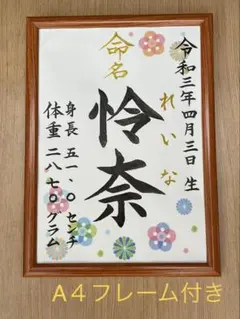 令和三年四月三日 生
命名
れいな
怜奈
身長 五一、〇 センチ
体重 二八七〇 グラム
A4フレーム付き